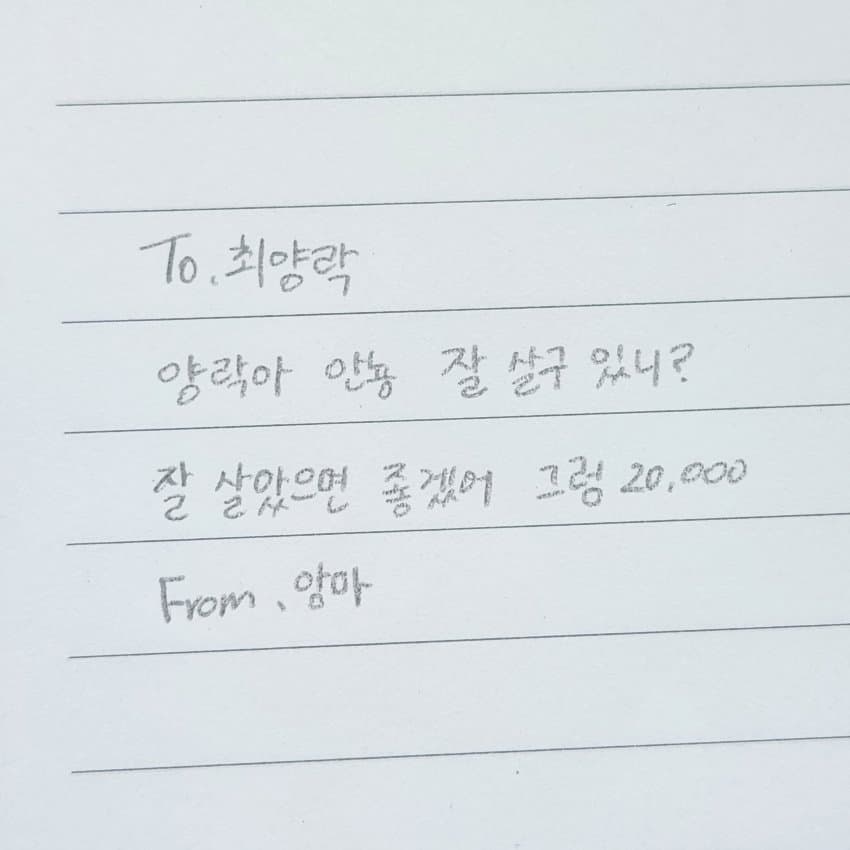 To. 최양락
양락아 안뇽 잘 살구 있니?
잘 살았으면 좋겠어 그럼 20,000
From. 암마